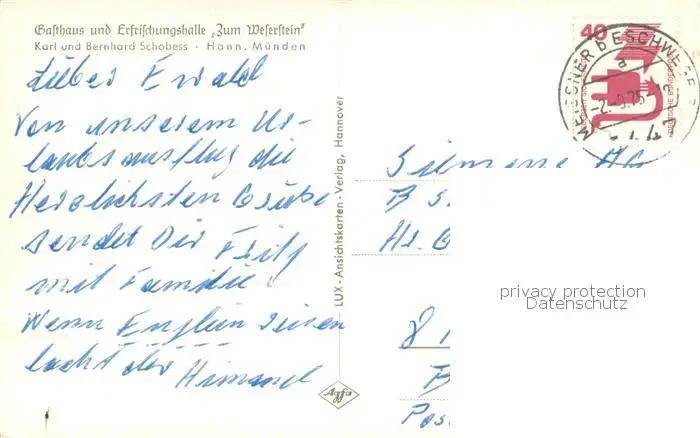 Gasthaus und Erfrischungshalle „Zum Weserstein"
Karl und Bernhard Schobess · Hann. Münden
Lieber Ewald
Von unserem Ur-
laubsausflug die
Herzlichsten Grüße
sendet Dir Fritz
mit Familie
Wenn Englein reisen
lacht der Himmel
LUX-Ansichtskarten-Verlag, Hannover
Agfa
40
MEISSNER b ESCHWEGE
a
-2.-9.75-
DEUTSCHE BUNDESPOST
Siemens AG
B
Hr.
8
Pos
privacy protection
Datenschutz